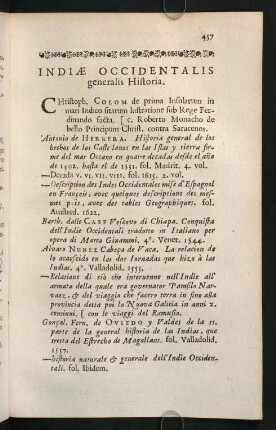 457
INDIÆ OCCIDENTALIS
generalis Historia.
CHristoph. COLOM de prima Insularum in
mari Indico sitarum lustratione sub Rege Fer-
dinando facta, [ c. Roberto Monacho de
bello Principum Christ. contra Saracenos.
Antonio de HERRERA. Historia general de los
hechos de los Castellanos en las Islas y tierra fir-
me del mar Oceano en quatro decadas desde el año
de 1492. hasta el de 1531. fol. Madrit. 4 vol.
—Decada v. vi. vii. viii. fol. 1615. 2. vol.
—Description des Indes Occidentales mise d'Espagnol
en François, avec quelques descriptions des mes-
mes païs, avec des tables Geographiques. fol.
Amsterd. 1622.
Barth. dalle CASE Vescovo di Chiapa. Conquista
dell'Indie Occidentali tradotto in Italiano per
opera di Marco Ginammi. 4°. Venet. 1544.
Alvaro NUNEZ Cabeça de Vaca. La relacion de
lo acaescido en las dos Jornadas que hizo à las
Indias. 4°. Valladolid. 1555.
—Relatione di ciò che intervenne nell'Indie all'
armata della quale era governator Pamfilo Nar-
vaez, & del viaggio che facero terra in fino alla
provincia detta poi la Nuova Galicia in anni x.
continui, [ con le viaggi del Ramusio.
Gonçal. Fern. de OVIEDO y Valdes de la 2.
parte de la general historia de las Indias, que
tresta del Estrecho de Magallans. fol. Valladolid.
1557.
—historia naturale & generale dell'Indie Occiden-
tali. fol. Ibidem.